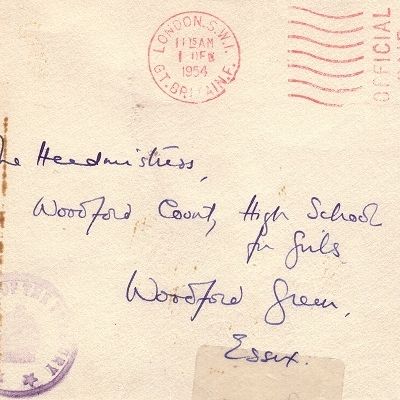 LONDON.S.W.1.
11 15 AM
1 DEC
1954
GT. BRITAIN.E.
OFFICIAL
The Headmistress,
Woodford County High School
for Girls
Woodford Green,
Essex.
OF THE